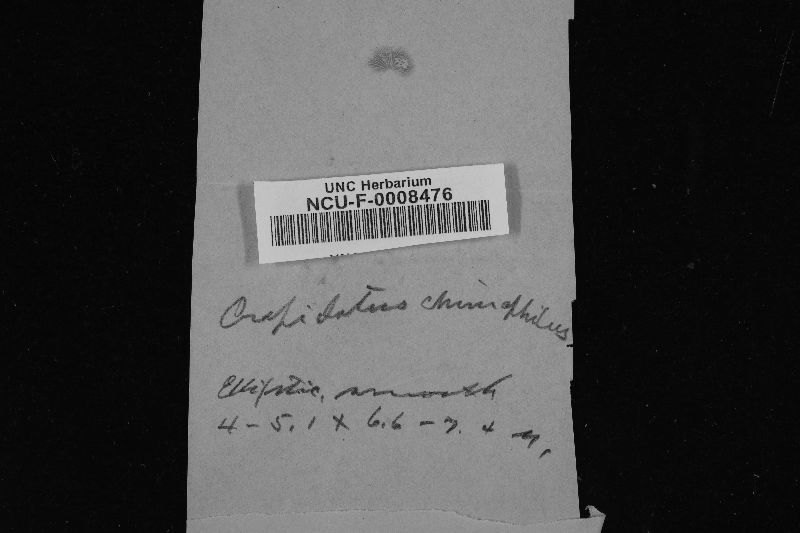 UNC Herbarium
NCU-F-0008476
Crepidotus chimophilus
Elliptic, smooth
4 - 5.1 x 6.6 - 7.4 μ.